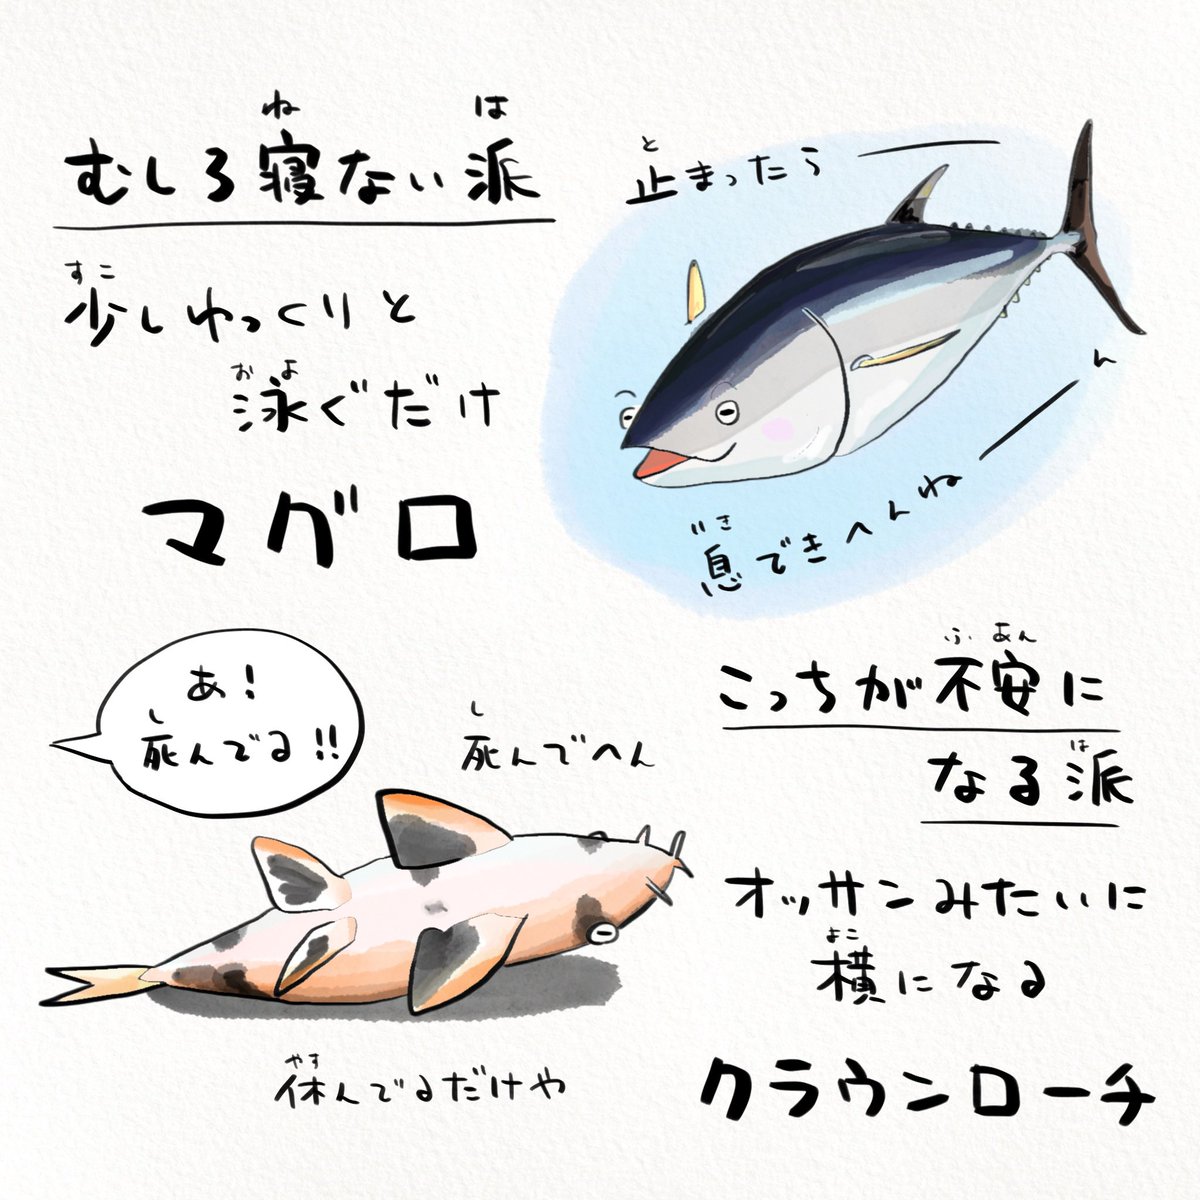 むしろ寝ない派
ね
は
少しゆっくりと
すこ
泳ぐだけ
およ
マグロ
止まったら
と
息できへんねーん
いき
あ!
死んでる!!
し
死んでへん
し
休んでるだけや
やす
こっちが不安に
ふあん
なる派
は
オッサンみたいに
横になる
よこ
クラウンローチ